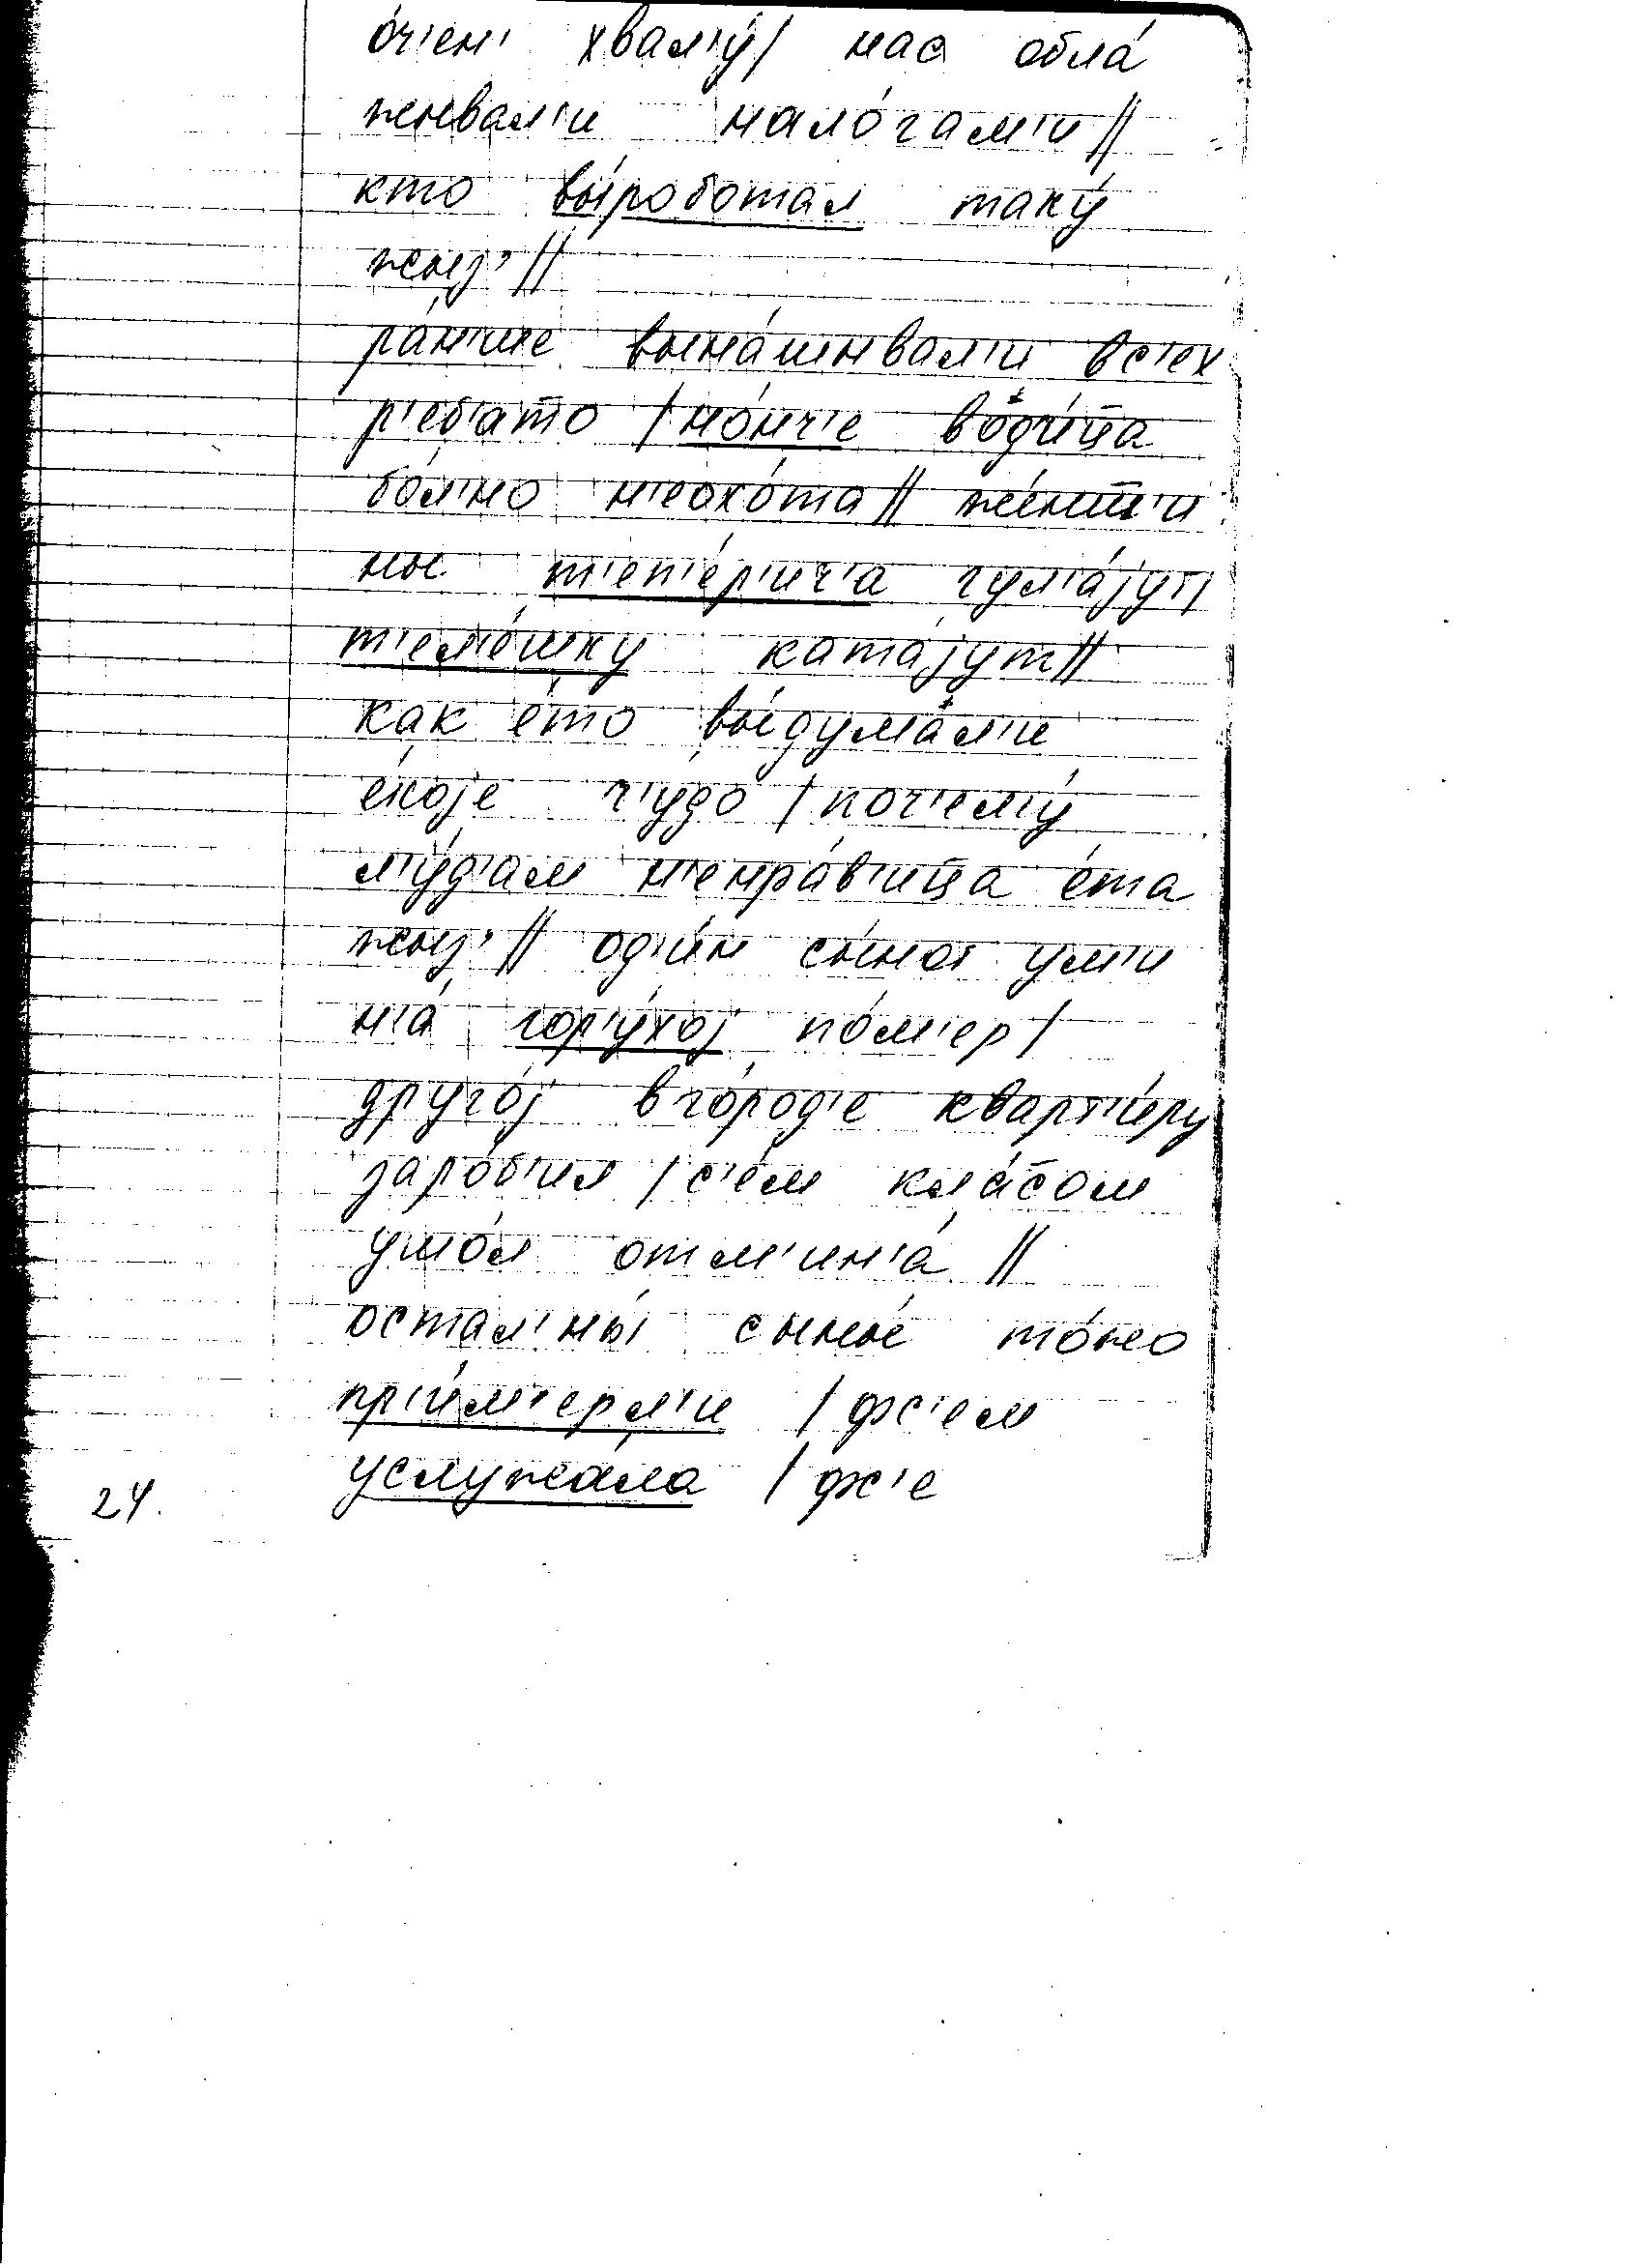 о́ч'ен' хвал'у́/ нас обла́
жывал'и нало́гам'и //
кто вы́роботал таку́
жыз'н' //
ра́н'ше вына́шывал'и вс'ех
р'еб'а́т о / но́нч'е вод'и́ц̄а
бо́л'но н'еохо́та // же́нш̄'и
ны т'еп'е́р'ич'а гул'а́јут/
т'ел'е́шку ката́јут //
как е́то вы́думал'и
е́које ч'у́до / поч'ему́
л'у́д'ам н'енра́в'иц̄а е́та
жыз' // од'и́н сыно́т ум'и
н'а́ гор'у́хој по́м'ер /
друго́ј в го́род'е кварт'и́ру
заро́б'ил / с'ем кла́с̄ом
ушо́л отм'ин'а́ //
остал'ны́ сыны́ то́жо
пр'и́м'ерл'и / фс'ем
услужа́ла / фс'е
24.